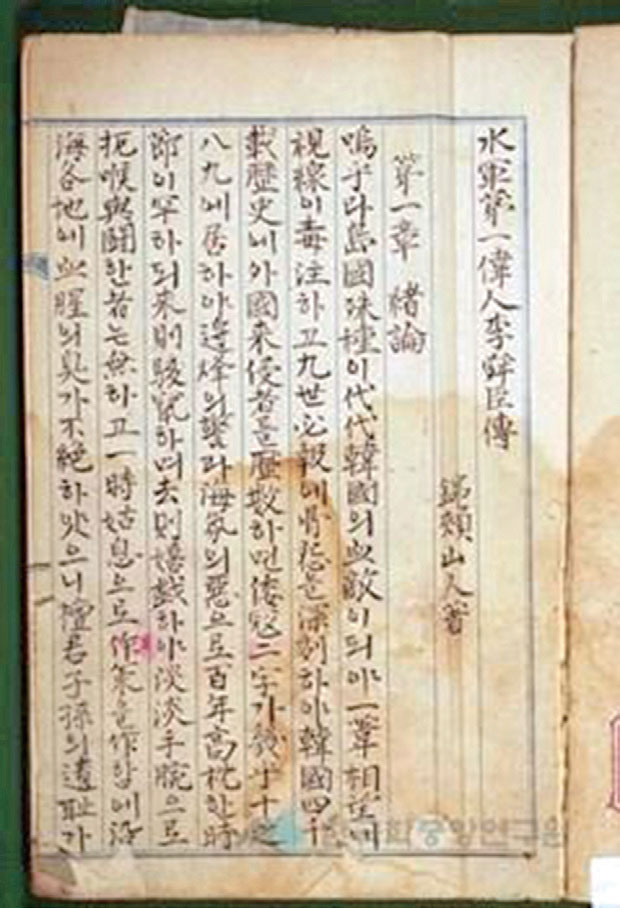 水軍第一偉人李舜臣傳
錦頰山人著
第一章 緖論
嗚乎라島國殊種이代代韓國의血敵이되야一葦相望에
視線이毒注하고九世必報에骨怨을深刻하야韓國四千
載歷史에外國來侵者를歷數하면倭寇二字가幾乎十之
八九에居하야邊烽의警과海氛의惡으로百年高枕한時
節이罕하되來則駭竄하며去則嬉戱하야淡淡手腕으로
扼喉與鬪한者는無하고一時姑息으로作策을作함에沿
海各地에血腥의臭가不絶하얏으니檀君子孫의遺恥가